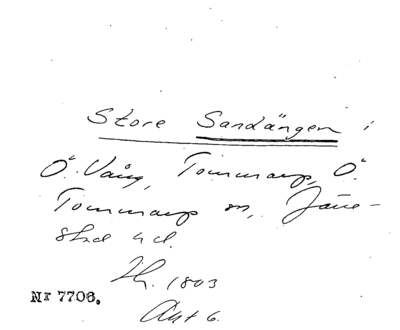 Store Sandängen i
Ö. Vång, Tommarp, Ö.
Tommarp sn, Järre-
stad hd.
Lh. 1803
Akt 6.
Nr 7706.